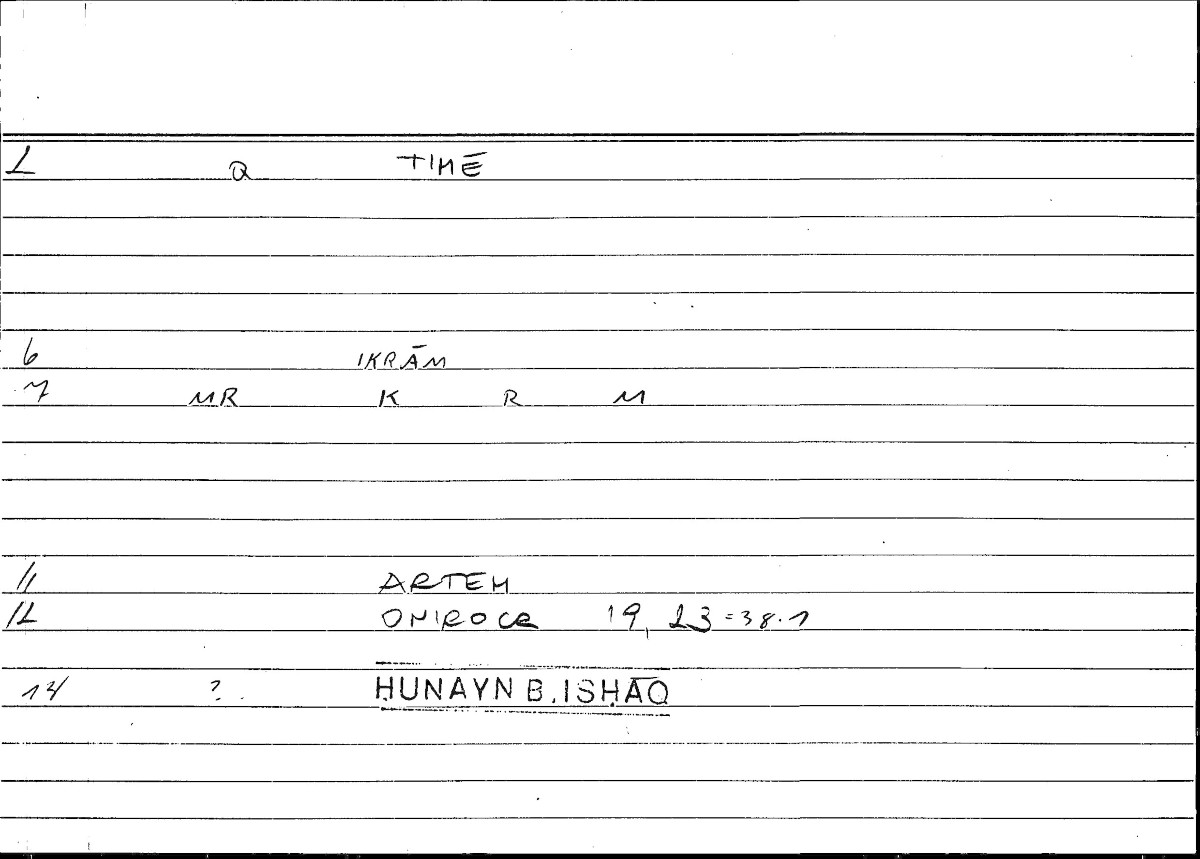 2 Q TIMĒ
6 IKRĀM
7 MR K R M
11 ARTEM
12 ONIROCR 19, 23 = 38.1
14 ? ḤUNAYN B. ISḤĀQ